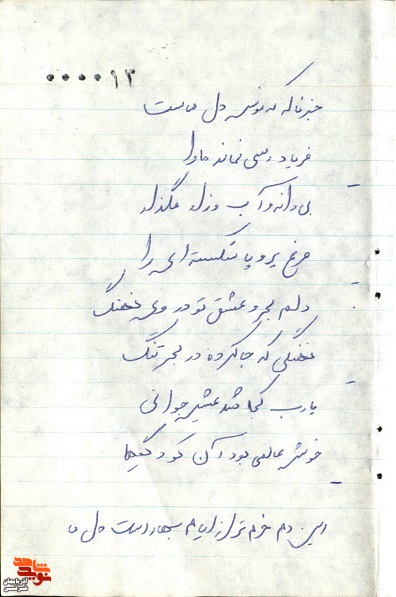 ۰۰۰۰۱۲
جز ناله که مونس دل ماست
فریاد رسی نماند ما را
بی دانه و آب و زار مگذار
مرغ پر و پا شکسته ای را
دلم بحر و عشق تو در وی نهنگ
نهنگی که جا کرده در بحر تنگ
یارب کجا شد عشق جوانی
خوش عالمی بود آن کودکیها
این دم خرم تر از ایام بهار است دل ما
نوید شاهد
آذربایجان شرقی